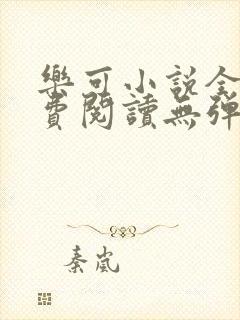 樂可小說全
費閱讀無彈
秦嵐